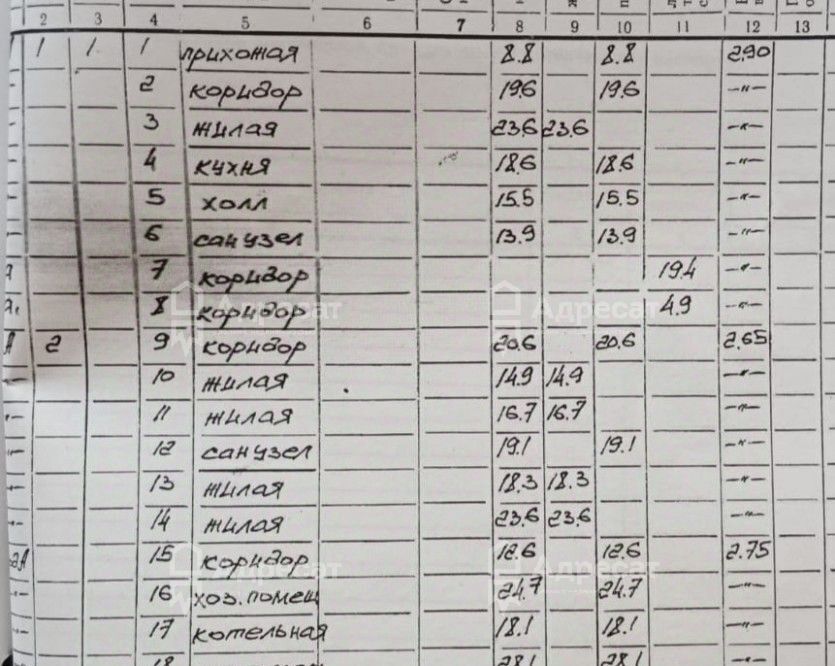 2 3 4 5 6 7 8 9 10 11 12 13
1 1 1 прихожая 8.8 8.8 2.90
2 коридор 19.6 19.6 -"-
3 жилая 23.6 23.6 -"-
4 кухня 18.6 18.6 -"-
5 холл 15.5 15.5 -"-
6 санузел 13.9 13.9 -"-
7 коридор 19.4 -"-
8 коридор 4.9 -"-
А 2 9 коридор 20.6 20.6 2.65
-"- 10 жилая 14.9 14.9 -"-
-"- 11 жилая 16.7 16.7 -"-
-"- 12 санузел 19.1 19.1 -"-
-"- 13 жилая 18.3 18.3 -"-
-"- 14 жилая 23.6 23.6 -"-
15 коридор 12.6 12.6 2.75
16 хоз.помещ 24.7 24.7 -"-
17 котельная 18.1 18.1 -"-
18 28.1 28.1 -"-
Адресат Адресат
Адресат Адресат